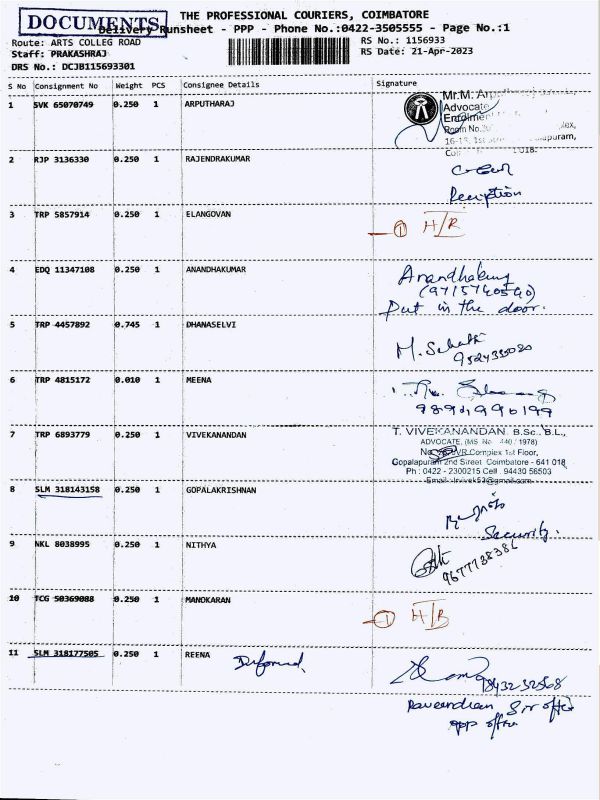 DOCUMENTS
THE PROFESSIONAL COURIERS, COIMBATORE
Delivery Runsheet - PPP - Phone No.:0422-3505555 - Page No.:1
Route: ARTS COLLEG ROAD
RS No.: 1156933
Staff: PRAKASHRAJ
RS Date: 21-Apr-2023
DRS No.: DCJB115693301
S No Consignment No Weight PCS Consignee Details Signature
1 SVK 65070749 0.250 1 ARPUTHARAJ
Mr.M.
Advocate
Room No.
2 RJP 3136330 0.250 1 RAJENDRAKUMAR
Reception
3 TRP 5857914 0.250 1 ELANGOVAN
1 H/R
4 EDQ 11347108 0.250 1 ANANDHAKUMAR
Anandhakumar
(9715740540)
Put in the door.
5 TRP 4457892 0.745 1 DHANASELVI
6 TRP 4815172 0.010 1 MEENA
9894990199
7 TRP 6893779 0.250 1 VIVEKANANDAN
T. VIVEKANANDAN. B.Sc., B.L.,
ADVOCATE, (MS. No. 440 / 1978)
VR Complex 1st Floor,
Gopalapuram 2nd Street Coimbatore - 641 018
Ph : 0422 - 2300215 Cell : 94430 56503
8 SLM 318143158 0.250 1 GOPALAKRISHNAN
Security.
9 NKL 8038995 0.250 1 NITHYA
10 TCG 50369088 0.250 1 MANOKARAN
1 H/B
11 SLM 318177505 0.250 1 REENA